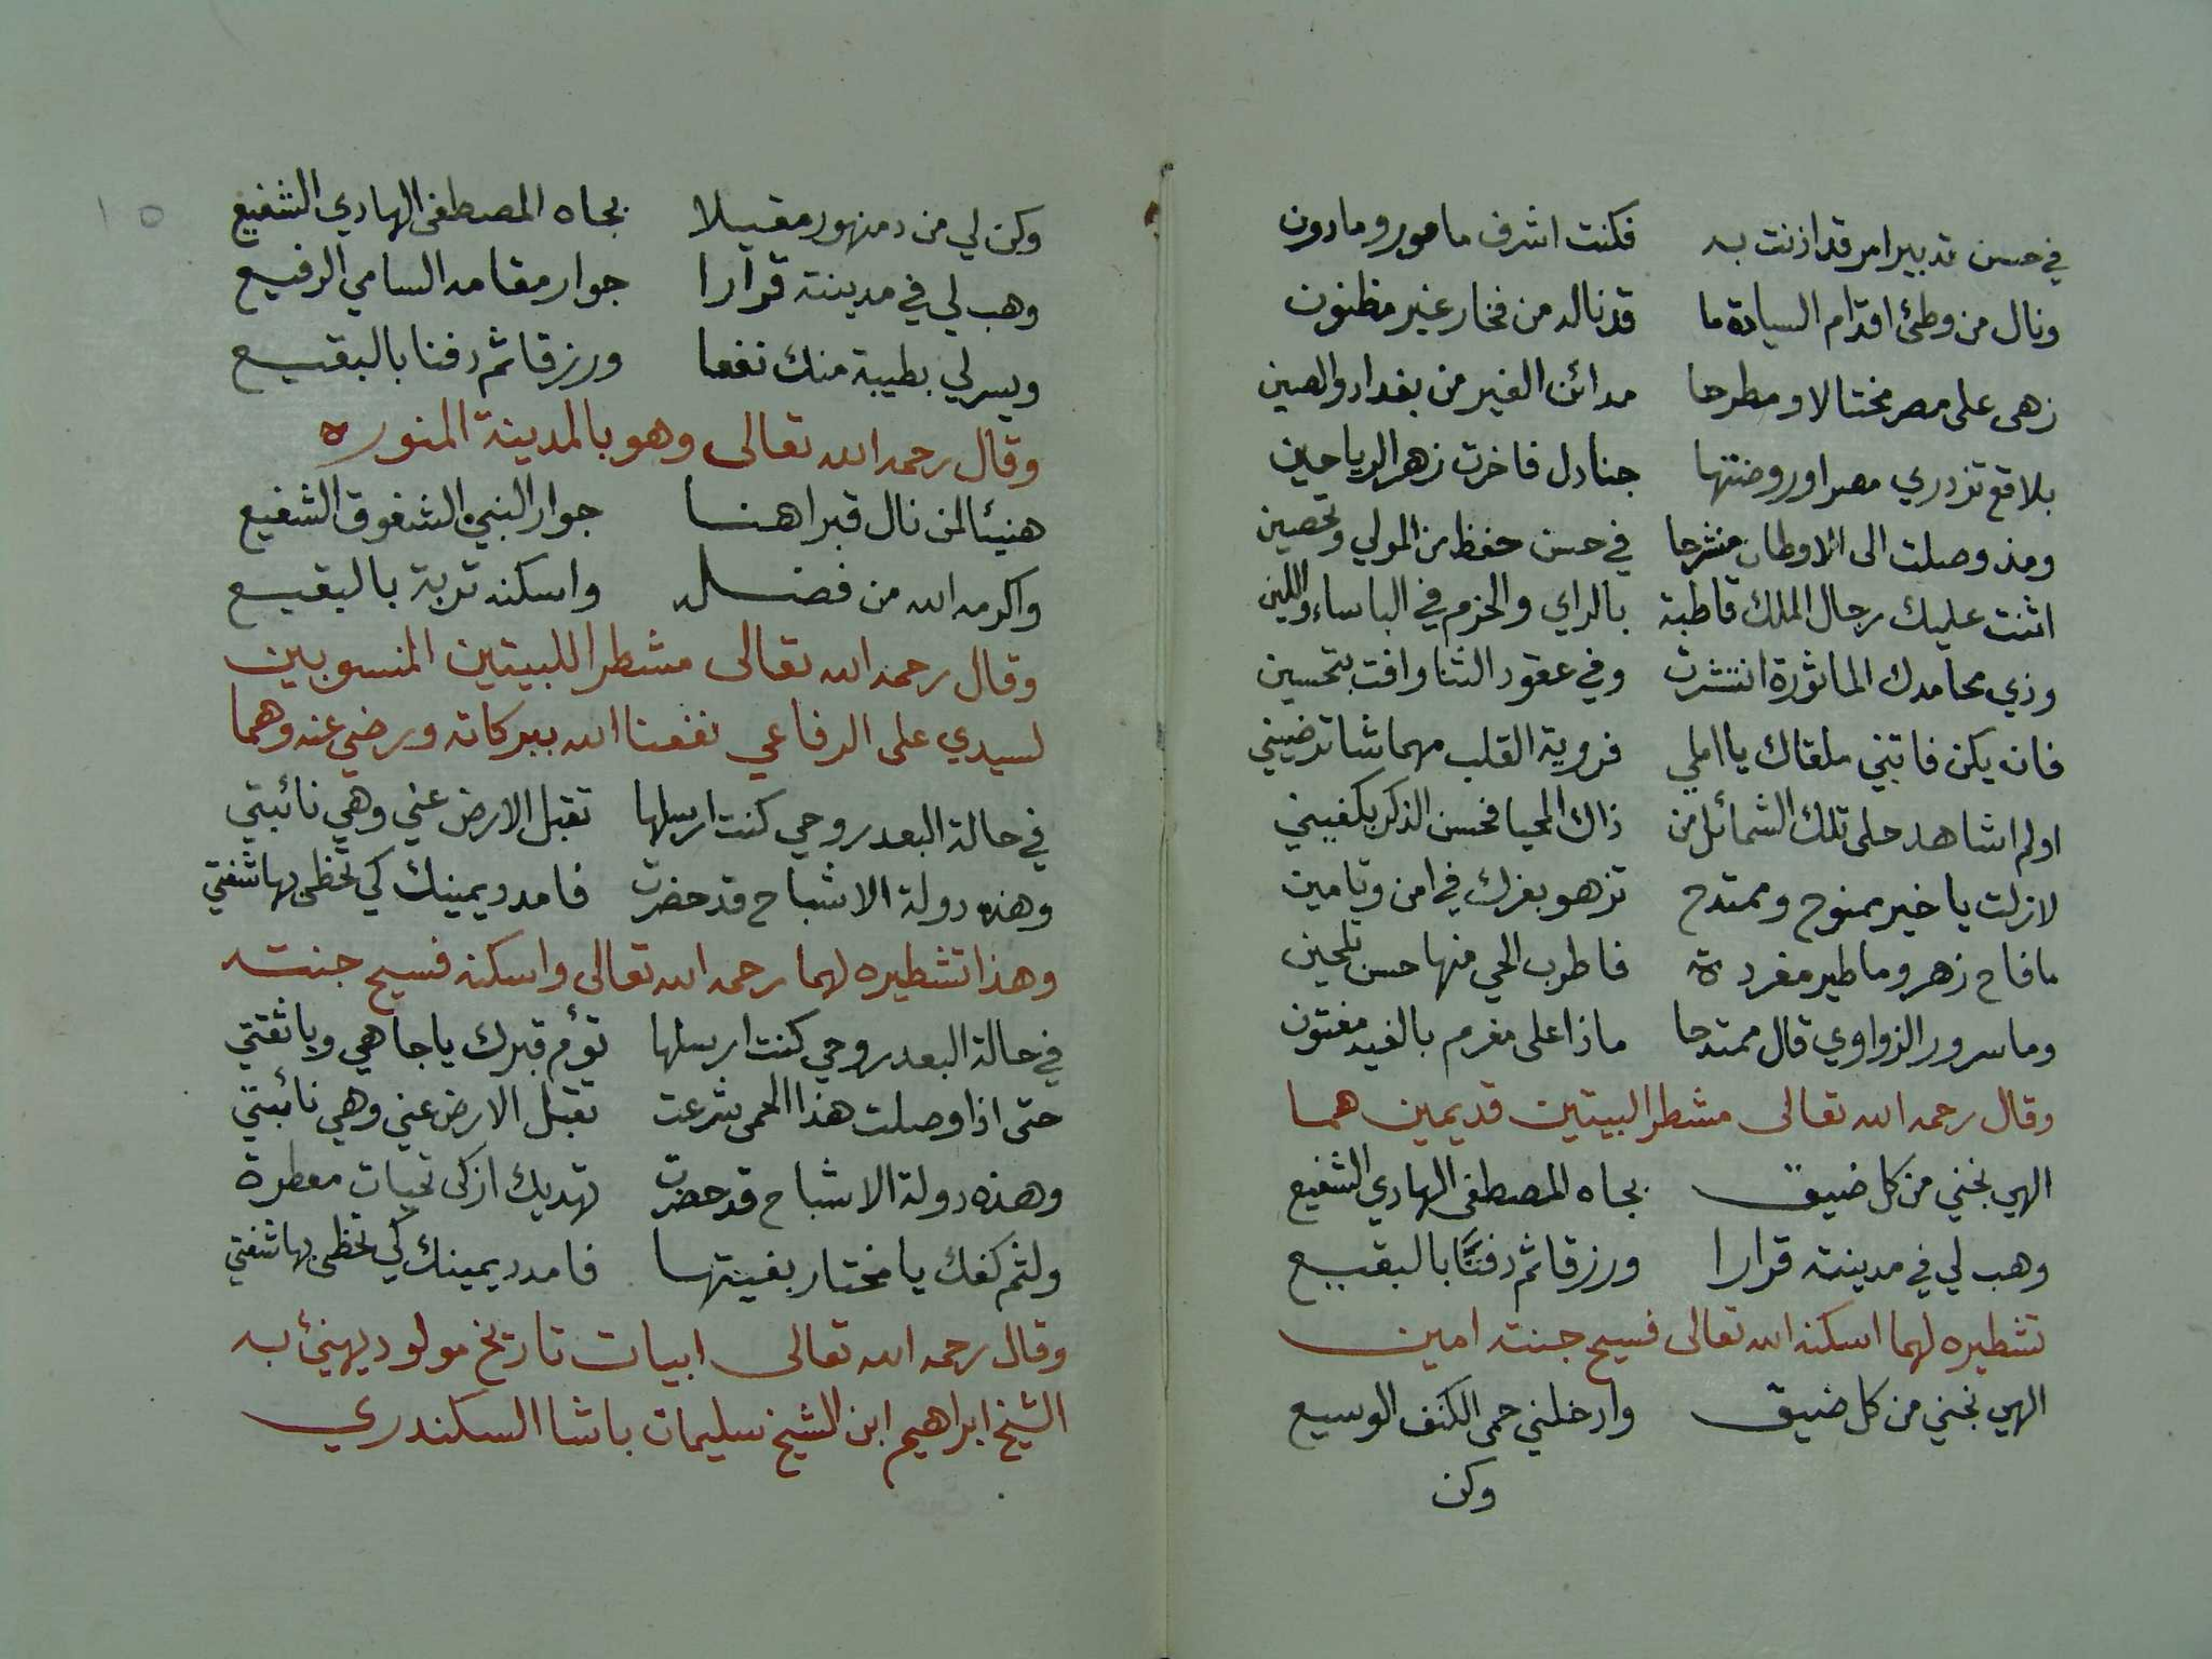 في حسن تدبير امر قد اذنت به فكنت اشرف مامور وماذون
ونال من وطئ اقدام السيادة ما قد ناله من فخار غير مظنون
زهى على مصر مختالا ومطرحا مدائن الغير من بغداد والصين
بلاقع تزدري مصرا وروضتها جنادل فاخرت زهر الرياحين
ومذ وصلت الى الاوطان منشرحا في حسن حفظ من المولي وتحصين
اثنت عليك رجال الملك قاطبة بالراي والحزم في الباساء واللين
وذي محامدك الماثورة انتشرت وفي عقود الثنا وافت بتحسين
فان يكن فاتني ملقاك يا املي فروية القلب مهما شا ترضيني
اولم اشاهد حلى تلك الشمائل من ذاك المحيا فحسن الذكر يكفيني
لازلت يا خير ممنوح وممتدح تزهو بعزك في امن وتامين
ما فاح زهر وما طير مغردة فاطرب الحي منها حسن تلحين
وما سرور الزواوي قال ممتدحا ماذا على مغرم بالغيد مفتون
وقال رحمه الله تعالى مشطرا لبيتين قديمين هما
الهي نجني من كل ضيق بجاه المصطفى الهادي الشفيع
وهب لي في مدينته قرارا ورزقا ثم دفنًا بالبقيع
تشطيره لهما اسكنه الله تعالى فسيح جنته امين
الهي نجني من كل ضيق وادخلني حمى الكنف الوسيع
وكن
١٥
وكن لي من دمنهور مقيلا بجاه المصطفى الهادي الشفيع
وهب لي في مدينته قرارا جوار مقامه السامي الرفيع
ويسر لي بطيبة منك نفعا ورزقا ثم دفنا بالبقيع
وقال رحمه الله تعالى وهو بالمدينة المنوره
هنيئا لمن نال قبرا هنا جوار النبي الشفوق الشفيع
واكرمه الله من فضله واسكنه تربة بالبقيع
وقال رحمه الله تعالى مشطرا للبيتين المنسوبين
لسيدي على الرفاعي نفعنا الله ببركاته ورضي عنه وهما
في حالة البعد روحي كنت ارسلها تقبل الارض عني وهي نائبتي
وهذه دولة الاشباح قد حضرت فامدد يمينك كي تحظى بها شفتي
وهذا تشطيره لهما رحمه الله تعالى واسكنه فسيح جنته
في حالة البعد روحي كنت ارسلها تؤم قبرك يا جاهي ويا ثقتي
حتى اذا وصلت هذا الحمى شرعت تقبل الارض عني وهي نائبتي
وهذه دولة الاشباح قد حضرت تهديك ازكى تحيات معطرة
ولثم كفك يا مختار بغيتها فامدد يمينك كي تحظى بها شفتي
وقال رحمه الله تعالى ابيات تاريخ مولود يهنئ به
الشيخ ابراهيم ابن الشيخ سليمان باشا السكندري